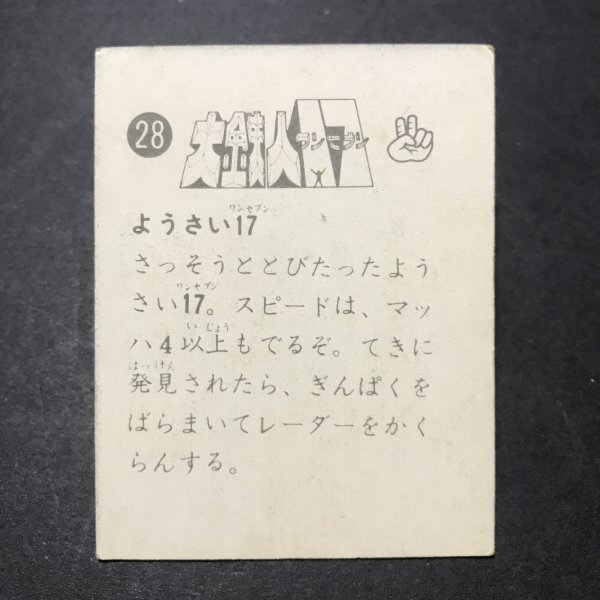 28
大鉄人17
ワンセブン
ワンセブン
ようさい17
さっそうととびたったよう
ワンセブン
さい17。スピードは、マッ
いじょう
ハ4以上もでるぞ。てきに
はっけん
発見されたら、ぎんぱくを
ばらまいてレーダーをかく
らんする。